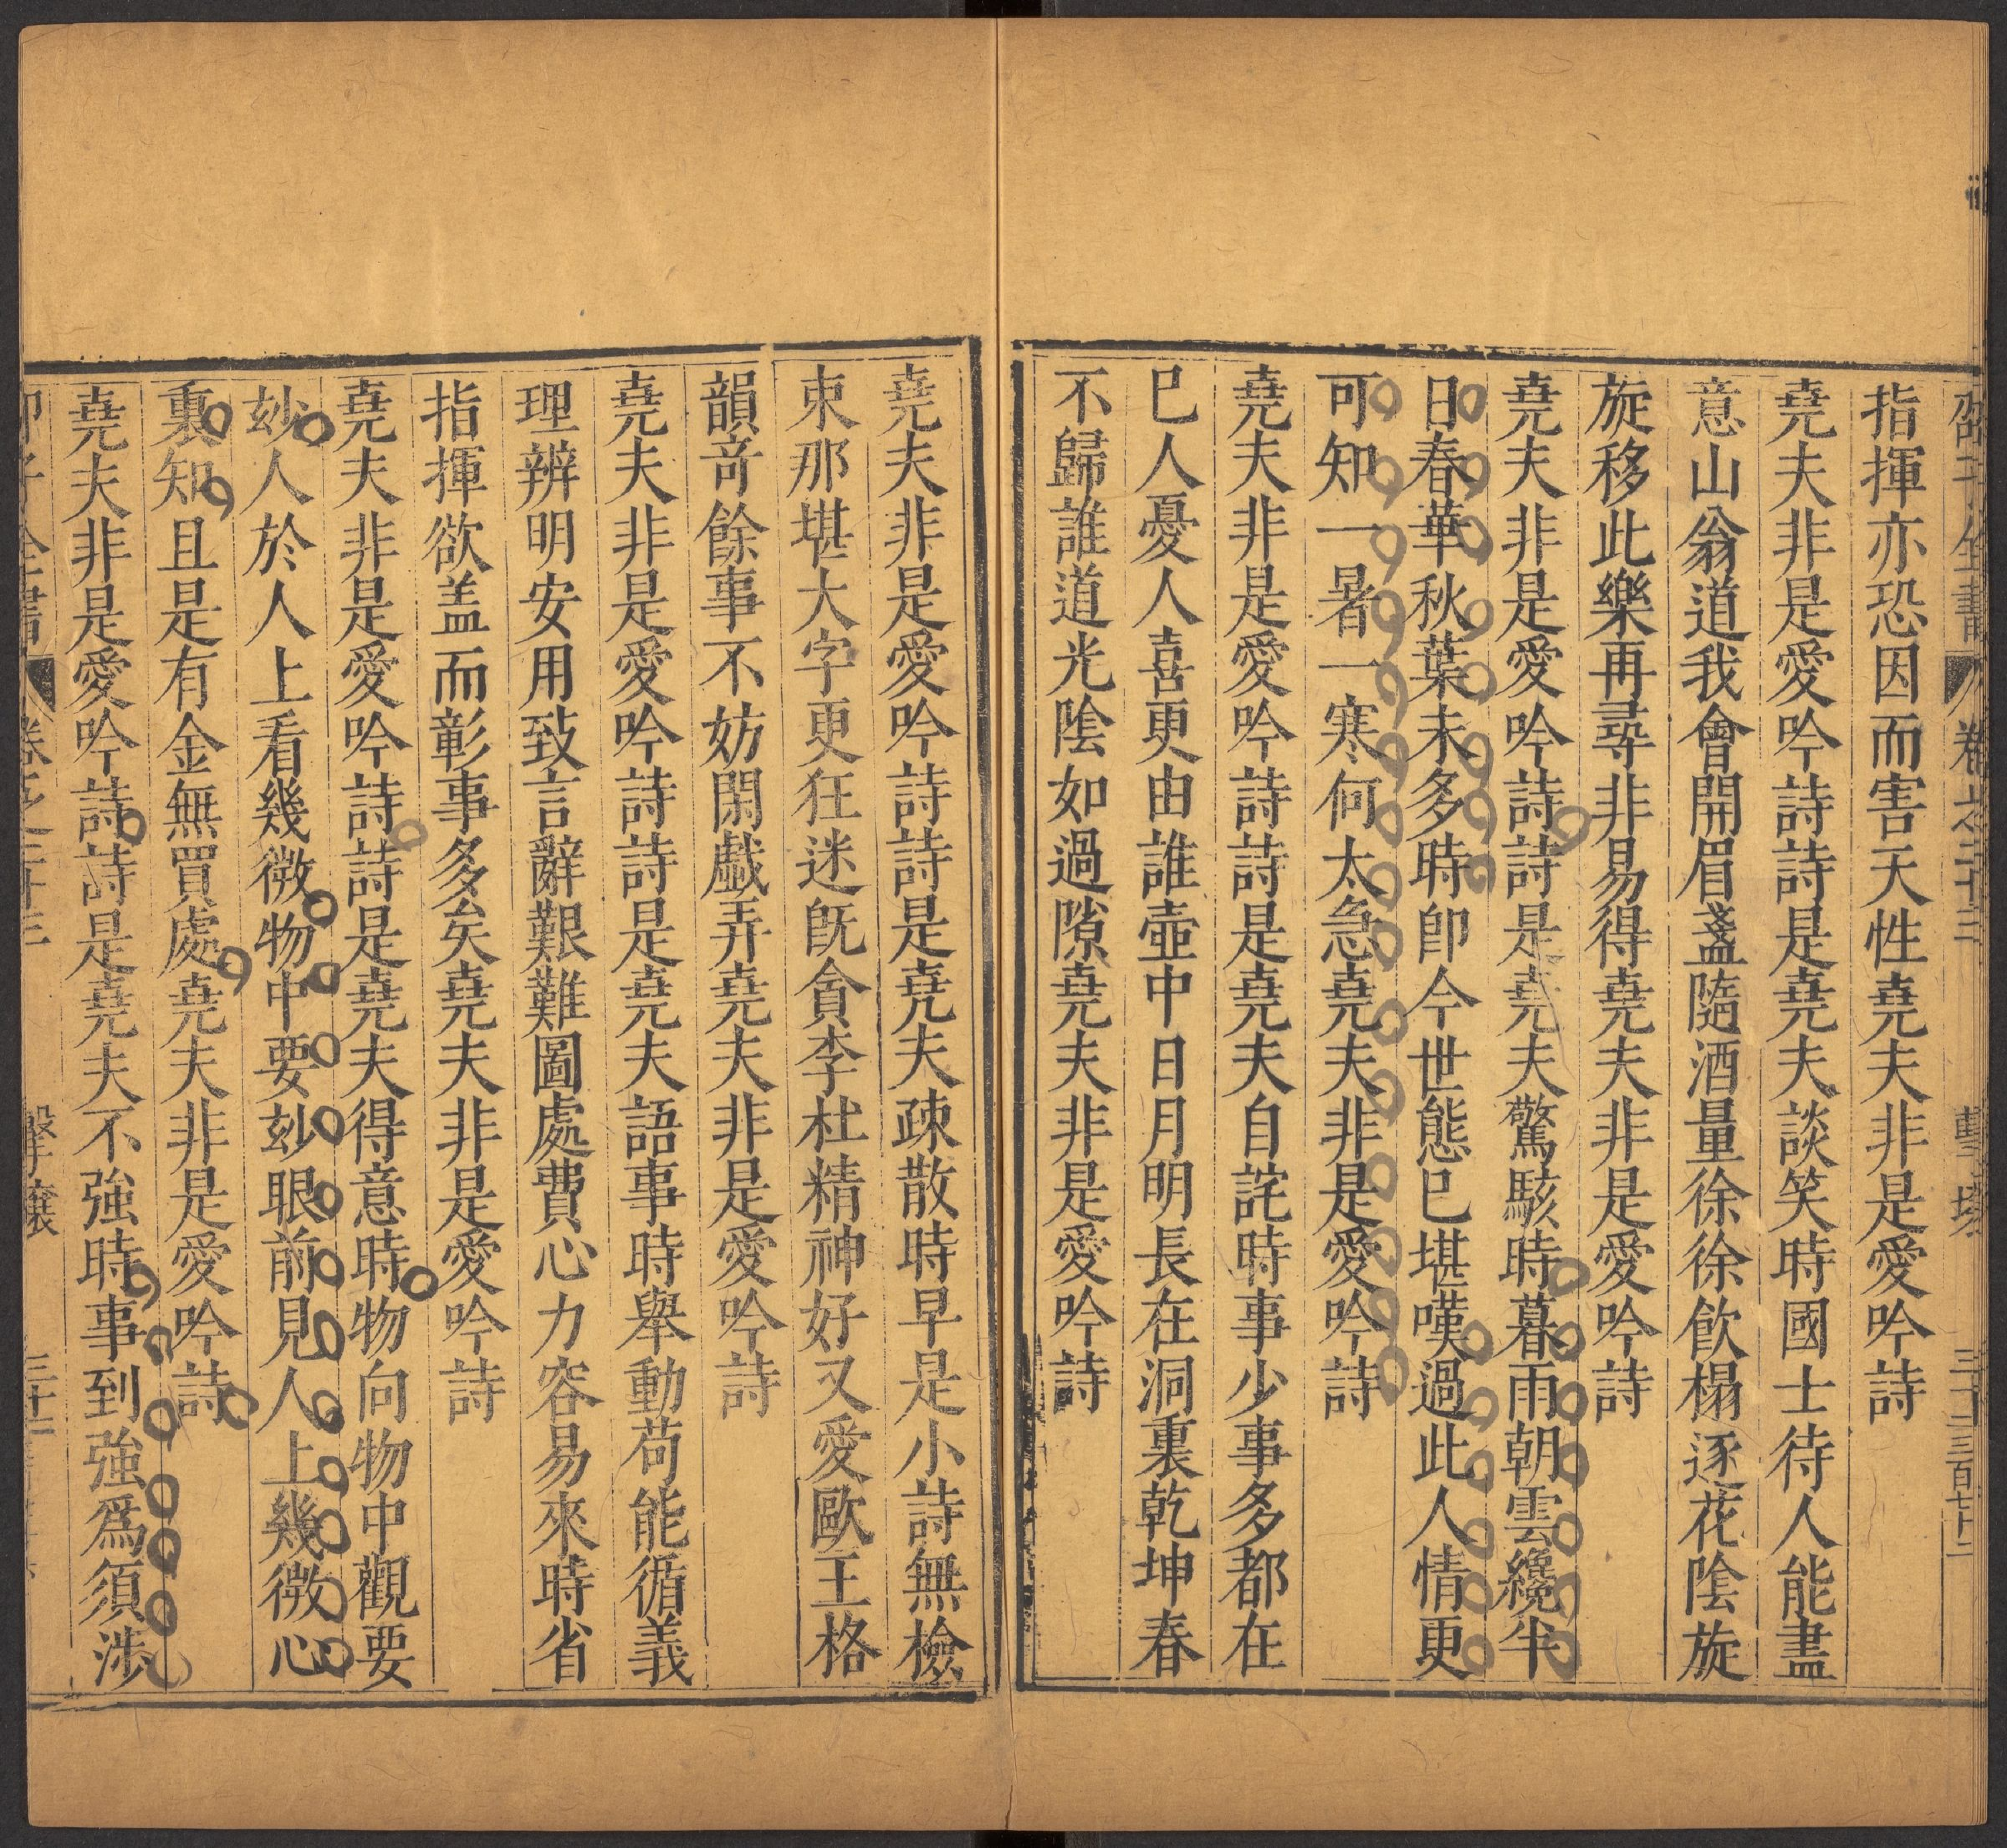 邵子全書 卷之二十三 擊壤 三十三 三百七十二
指揮亦恐因而害天性堯夫非是愛吟詩
堯夫非是愛吟詩詩是堯夫談笑時國士待人能盡
意山翁道我會開眉盞隨酒量徐徐飲榻逐花陰旋
旋移此樂再尋非易得堯夫非是愛吟詩
堯夫非是愛吟詩詩是堯夫驚駭時暮雨朝雲纔半
日春華秋葉未多時卽今世態已堪嘆過此人情更
可知一暑一寒何太急堯夫非是愛吟詩
堯夫非是愛吟詩詩是堯夫自詫時事少事多都在
巳人憂人喜更由誰壺中日月明長在洞裏乾坤春
不歸誰道光陰如過隙堯夫非是愛吟詩
堯夫非是愛吟詩詩是堯夫疎散時早是小詩無檢
束那堪大字更狂迷旣貪李杜精神好又愛歐王格
韻竒餘事不妨閑戲弄堯夫非是愛吟詩
堯夫非是愛吟詩詩是堯夫語事時舉動苟能循義
理辨明安用致言辭艱難圖處費心力容易來時省
指揮欲盖而彰事多矣堯夫非是愛吟詩
堯夫非是愛吟詩詩是堯夫得意時物向物中觀要
玅人於人上看幾微物中要玅眼前見人上幾微心
裏知且是有金無買處堯夫非是愛吟詩
堯夫非是愛吟詩詩是堯夫不強時事到強爲須涉
子全書 卷之二十三 擊壤